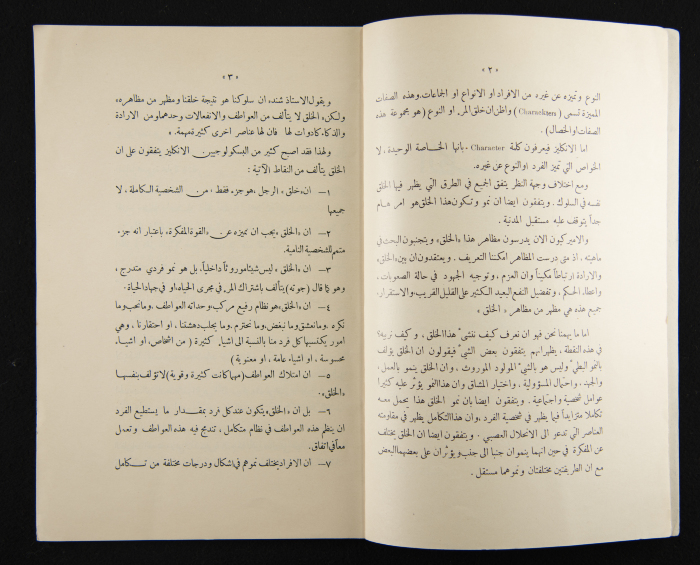 «٢»
النوع وتميزه عن غيره من الافراد او الانواع او الجماعات. وهذه الصفات
المميزة تسمى (Charackten) واظن ان خلق المرء او النوع (هو مجموعة هذه
الصفات او الخصال).
اما الانكليز فيعرفون كلمة Character ـ بانها الخاصة الوحيدة، لا
الخواص التي تميز الفرد او النوع عن غيره.
ومع اختلاف وجهة النظر يتفق الجميع في الطرق التي يظهر فيها الخلق
نفسه في السلوك. ويتفقون ايضا ان نمو وتكون هذا الخلق هو امر هام
جداً يتوقف عليه مستقبل المدنية.
والاميركيون الان يدرسون مظاهر هذا «الخلق» ويتجنبون البحث في
ماهيته. اذ متى درست المظاهر امكننا التعريف. ويعتقدون ان بين «الخلق»
والارادة ارتباطاً مكيناً وان العزم، وتوجيه الجهود في حالة الصعوبات،
واعطاء الحكم، وتفضيل النفع البعيد الكثير على القليل القريب، والاستقرار،
جميع هذه هي مظهر من مظاهر «الخلق»
اما ما يهمنا نحن فهو ان نعرف كيف ننشيء هذا الخلق، وكيف نربيه؟
في هذه النقطة، يظهر انهم يتفقون بعض الشيء فيقولون ان الخلق يؤلف
بالنمو البطيء وليس هو بالشيء المولود الموروث. وان الخلق ينمو بالعمل،
والجهد. واحتمال المسؤولية، واختبار المشاق وان هذا النمو يؤثر عليه كثيرا
عوامل شخصية واجتماعية. ويتفقون ايضا بان نمو الخلق هذا يحمل معه
تكاملا متزايداً فيما يظهر في شخصية الفرد، وان هذا التكامل يظهر في مقاومته
العناصر التي تدعو الى الانحلال العصبي. ويتفقون ايضا ان الخلق يختلف
عن المفكرة في حين انهما ينموان جنبا الى جنب ويؤثران على بعضهما البعض
مع ان الطريقتين مختلفتان ونموهما مستقل.
«٣»
ويقول الاستاذ شند «ان سلوكنا هو نتيجة خلقنا ومظهر من مظاهره»
ولكن «الخلق لا يتألف من العواطف والانفعالات وحدها ومن الارادة
والذكاء كادوات لها فان لها عناصر اخرى كثيرة مهمة».
ولهذا فقد اصبح كثير من البسكولوجيين الانكليز يتفقون على ان
الخلق يتألف من النقاط الآتية:
١ـ ان «خلق» الرجل، هو جزء فقط، من الشخصية الكاملة، لا
جميعها
٢ـ ان «الخلق» يجب ان نميزه عن «القوة المفكرة» باعتبار انه جزء
متمم للشخصية النامية.
٣ـ ان «الخلق» ليس شيئا موروثاً داخلياً. بل هو نمو فردي متدرج،
وهو كما قال (جوته) يتألف باشتراك المرء في مجرى الحياة، او في جهاد الحياة.
٤ـ ان «الخلق» هو نظام رفيع مركب، وحداته العواطف. وما نحب وما
نكره. وما نعشق وما نبغض، وما نحترم. وما يجلب دهشتنا، او احتقارنا، وهي
امور يكتسبها كل فرد منا بالنسبة الى اشياء كثيرة (من اشخاص، او اشياء
محسوسة، او اشياء عامة، او معنوية)
٥ـ ان امتلاك العواطف (مهما كانت كثيرة وقوية) لا تؤلف بنفسها
«الخلق».
٦ـ بل ان «الخلق» يتكون عند كل فرد بمقدار ما يستطيع الفرد
ان ينظم هذه العواطف في نظام متكامل، تندمج فيه هذه العواطف وتعمل
معاً في اتفاق.
٧ـ ان الافراد يختلف نموهم في اشكال ودرجات مختلفة من تكامل